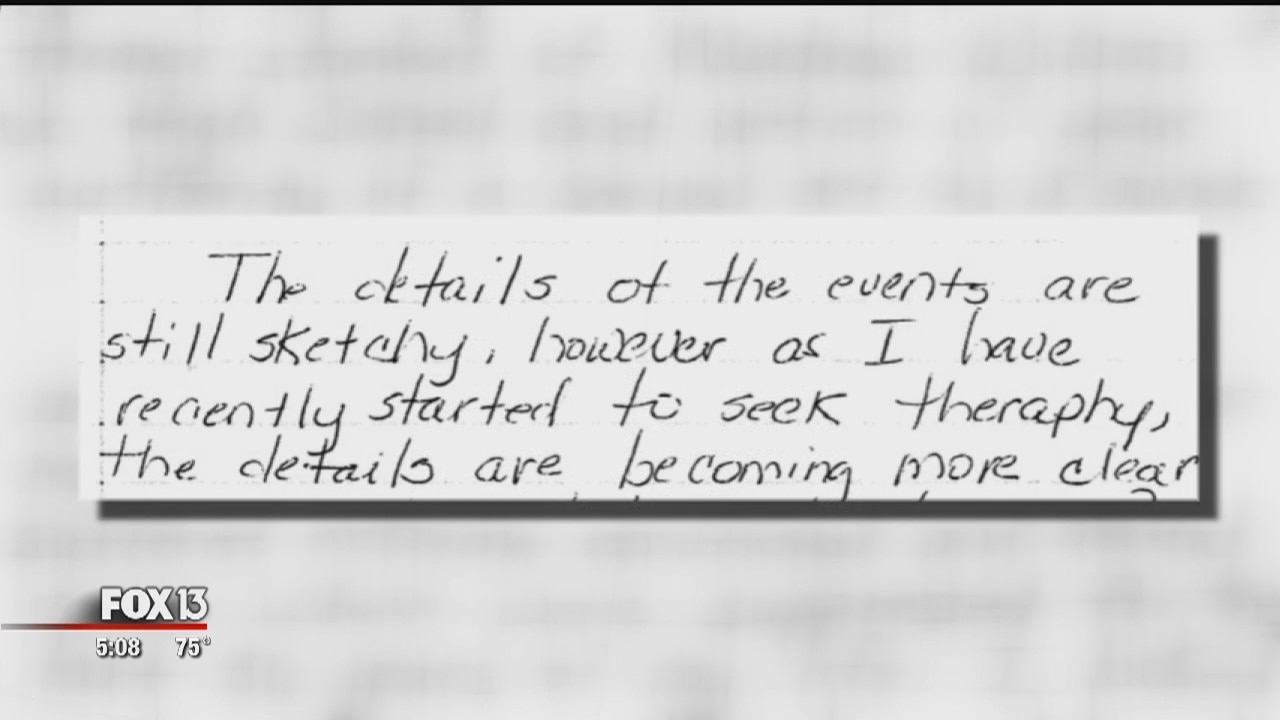 The details of the events are
still sketchy, however as I have
recently started to seek theraphy,
the details are becoming more clear
FOX 13
5:08 75°